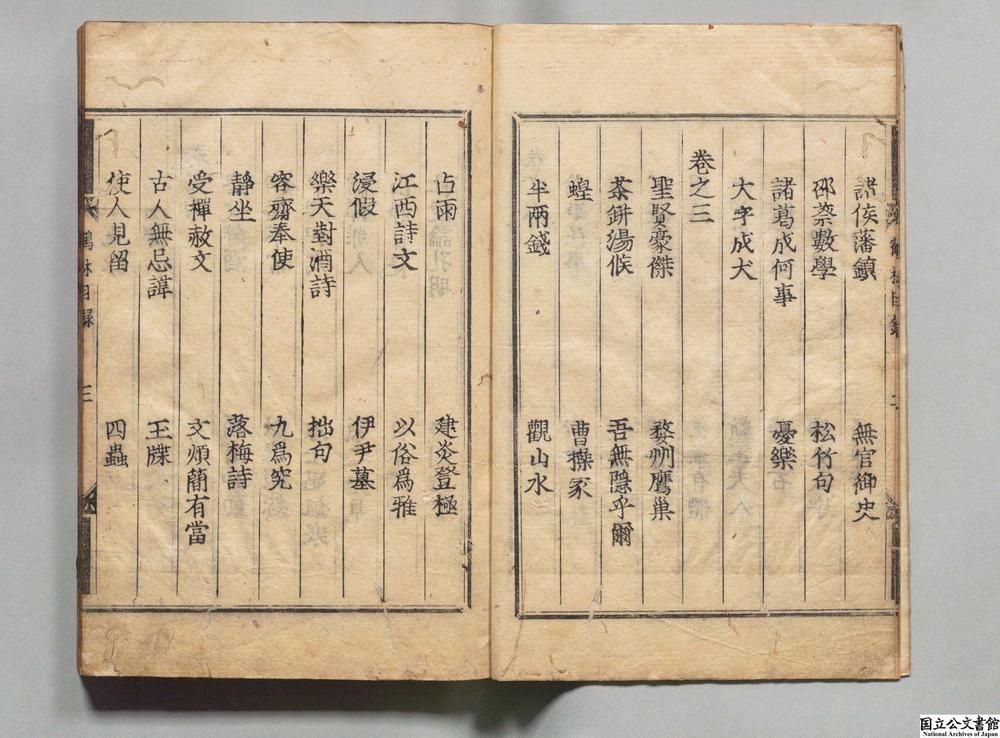 諸侯藩鎮　無官御史
邵蔡數學　松竹句
諸葛成何事　憂樂
大字成犬
卷之三
聖賢豪傑　婺州鷹巢
茶缾湯候　吾無隱乎爾
蝗　曹操冢
半兩錢　觀山水
占雨　建炎登極
江西詩文　以俗爲雅
浸假　伊尹墓
樂天對酒詩　拙句
容齋奉使　九爲究
靜坐　落梅詩
受禪赦文　文煩簡有當
古人無忌諱　王牒
使人見留　四蟲
鶴林目録　三
国立公文書館
National Archives of Japan